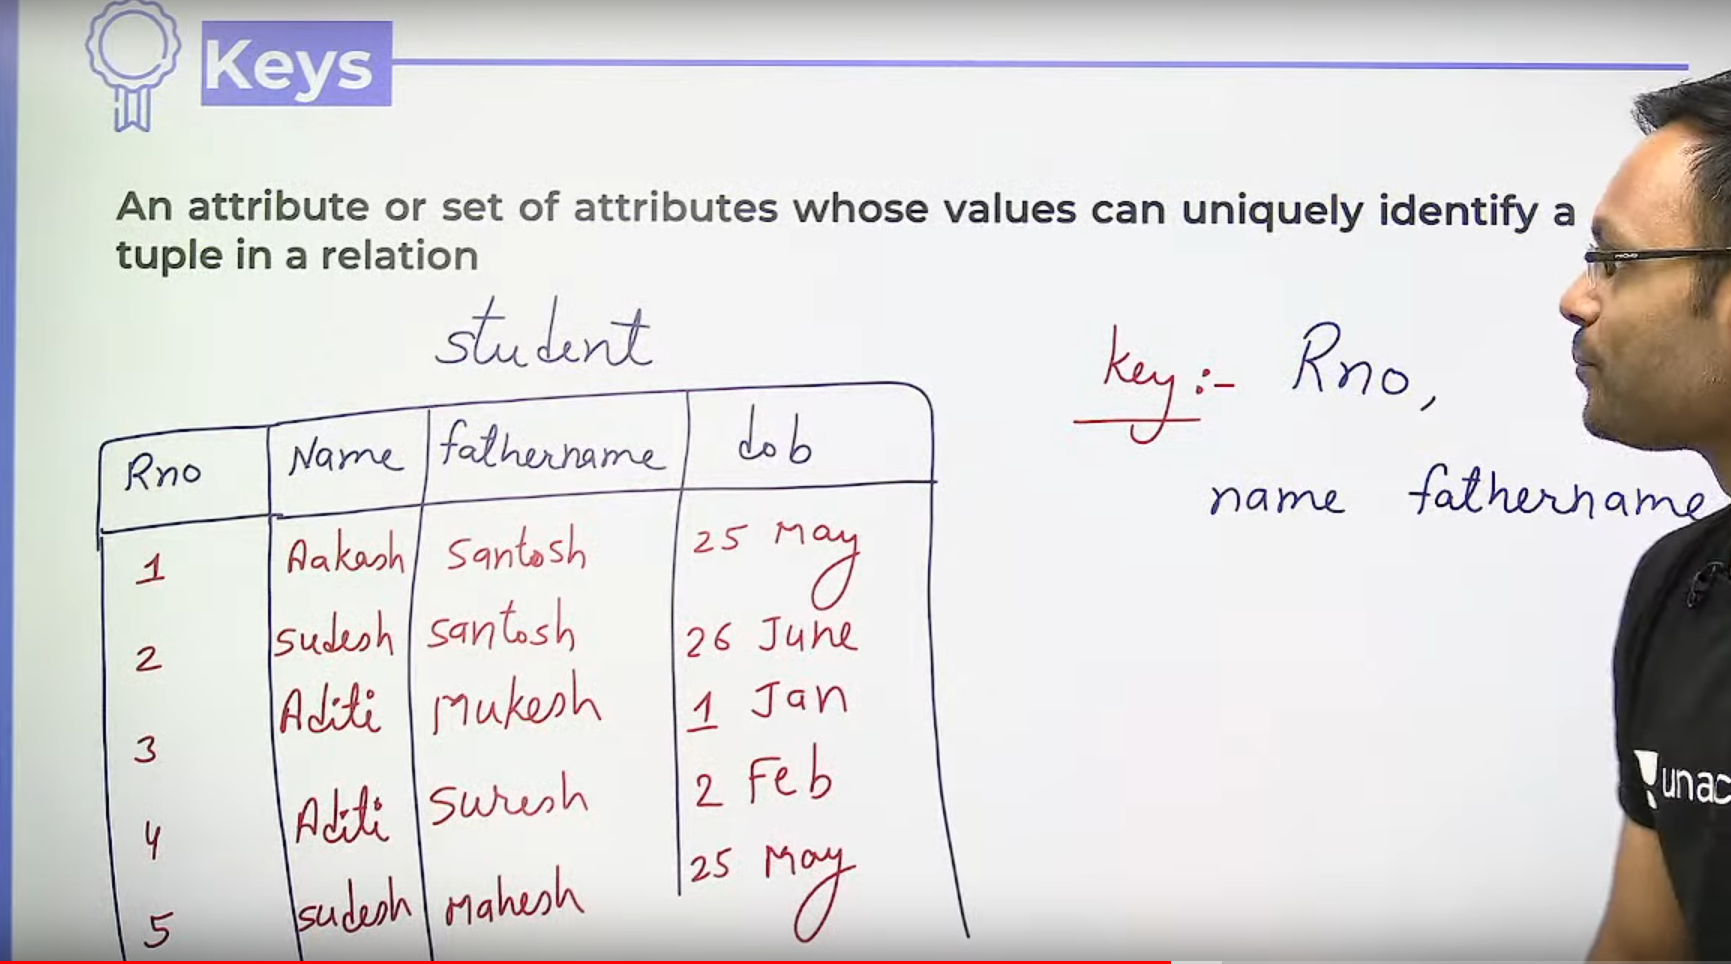 Keys
An attribute or set of attributes whose values can uniquely identify a
tuple in a relation
student
key:- Rno,
name fathername
Rno Name fathername dob
1 Aakash Santosh 25 May
2 Sudesh Santosh 26 June
3 Aditi Mukesh 1 Jan
4 Aditi Suresh 2 Feb
5 Sudesh Mahesh 25 May
unac